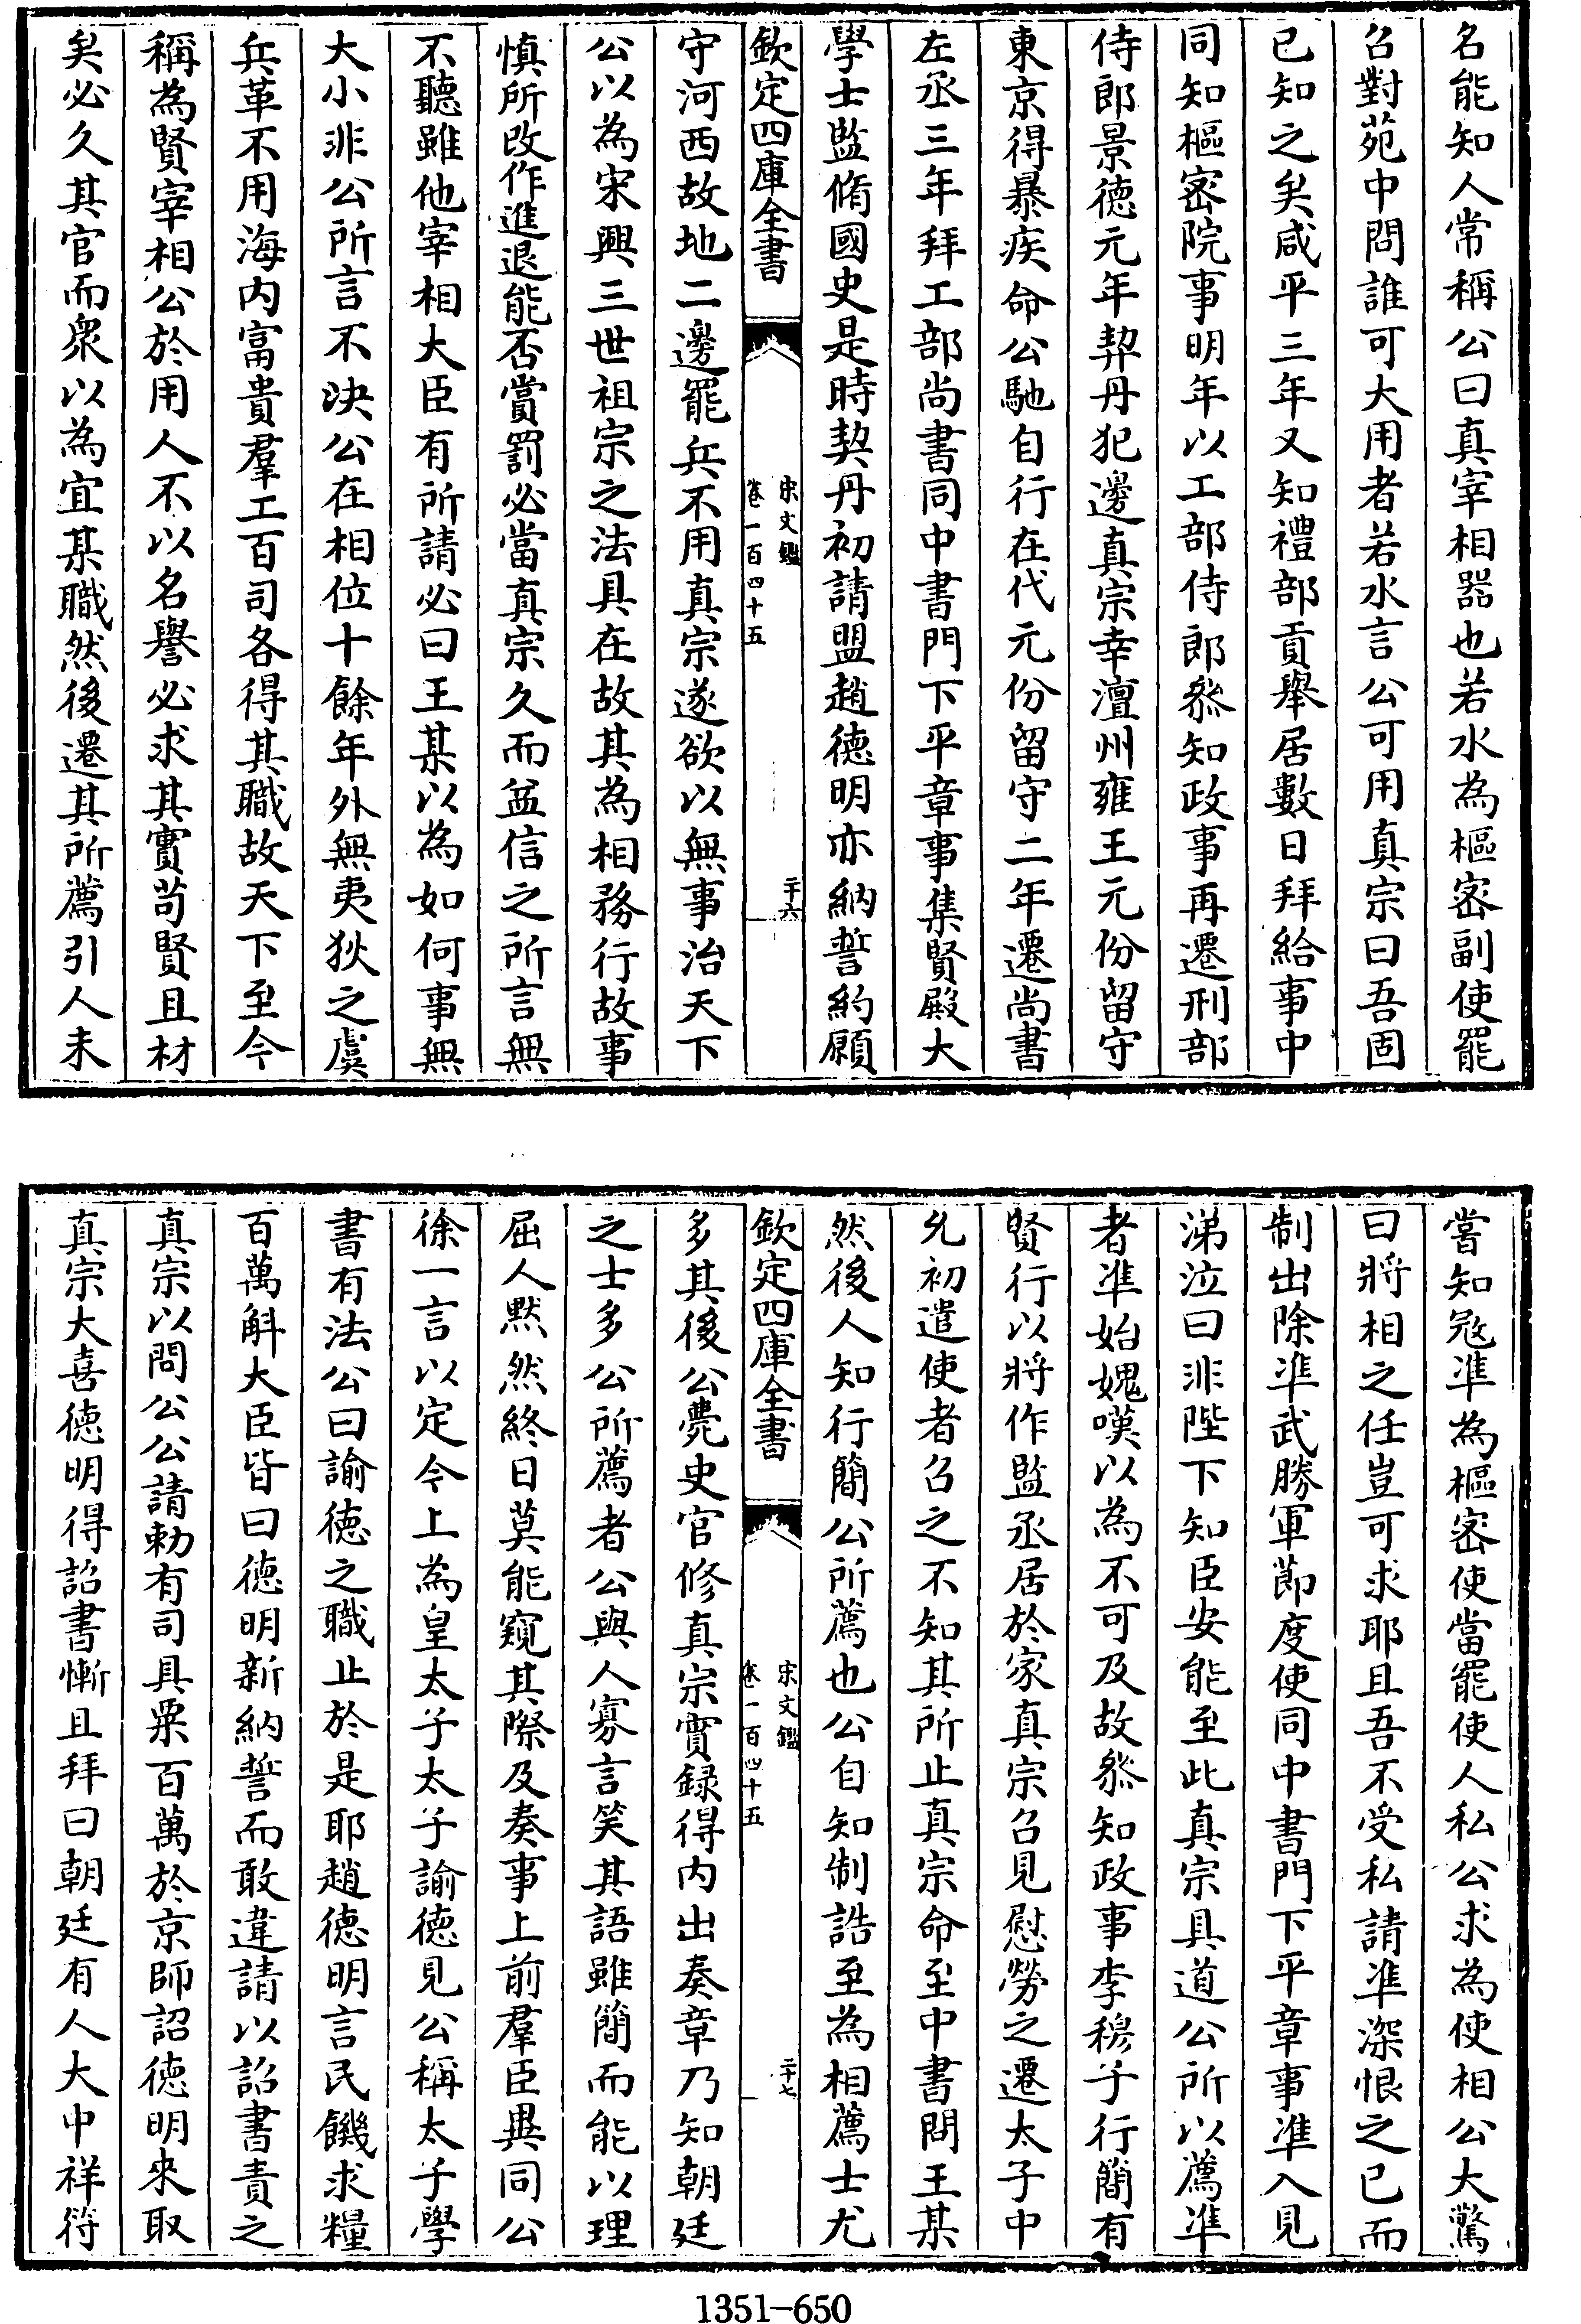 名能知人常稱公曰真宰相器也若水為樞密副使罷
召對苑中問誰可大用者若水言公可用真宗曰吾固
已知之矣咸平三年又知禮部貢舉居數日拜給事中
同知樞密院事明年以工部侍郎叅知政事再遷刑部
侍郎景德元年契丹犯邊真宗幸澶州雍王元份留守
東京得暴疾命公馳自行在代元份留守二年遷尚書
左丞三年拜工部尚書同中書門下平章事集賢殿大
學士監脩國史是時契丹初請盟趙德明亦納誓約願
欽定四庫全書
宋文鑑
卷一百四十五
二十六
守河西故地二邊罷兵不用真宗遂欲以無事治天下
公以為宋興三世祖宗之法具在故其為相務行故事
慎所改作進退能否賞罰必當真宗久而益信之所言無
不聽雖他宰相大臣有所請必曰王某以為如何事無
大小非公所言不決公在相位十餘年外無夷狄之虞
兵革不用海內富貴羣工百司各得其職故天下至今
稱為賢宰相公於用人不以名譽必求其實苟賢且材
矣必久其官而衆以為宜某職然後遷其所薦引人未
嘗知宼準為樞密使當罷使人私公求為使相公大驚
曰將相之任豈可求耶且吾不受私請準深恨之已而
制出除準武勝軍節度使同中書門下平章事準入見
涕泣曰非陛下知臣安能至此真宗具道公所以薦準
者準始媿嘆以為不可及故叅知政事李穆子行簡有
賢行以將作監丞居於家真宗召見慰勞之遷太子中
允初遣使者召之不知其所止真宗命至中書問王某
然後人知行簡公所薦也公自知制誥至為相薦士尤
欽定四庫全書
宋文鑑
卷一百四十五
二十七
多其後公薨史官修真宗實録得内出奏章乃知朝廷
之士多公所薦者公與人寡言笑其語雖簡而能以理
屈人默然終日莫能窺其際及奏事上前羣臣異同公
徐一言以定今上為皇太子太子諭德見公稱太子學
書有法公曰諭德之職止於是耶趙德明言民饑求糧
百萬斛大臣皆曰德明新納誓而敢違請以詔書責之
真宗以問公公請勅有司具粟百萬於京師詔德明來取
真宗大喜德明得詔書慚且拜曰朝廷有人大中祥符
1351-650